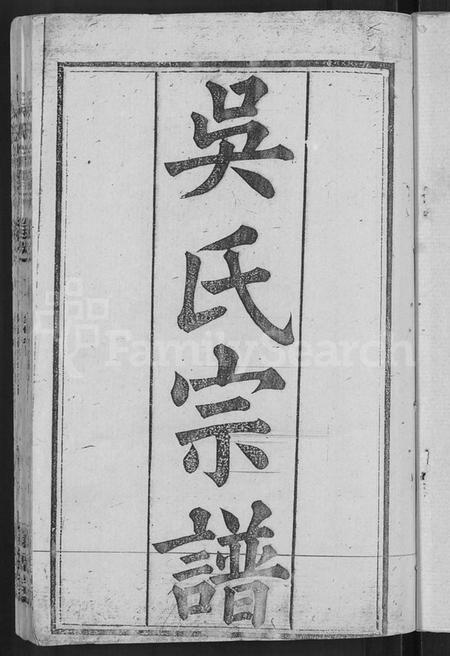 吳氏宗譜
FamilySearch